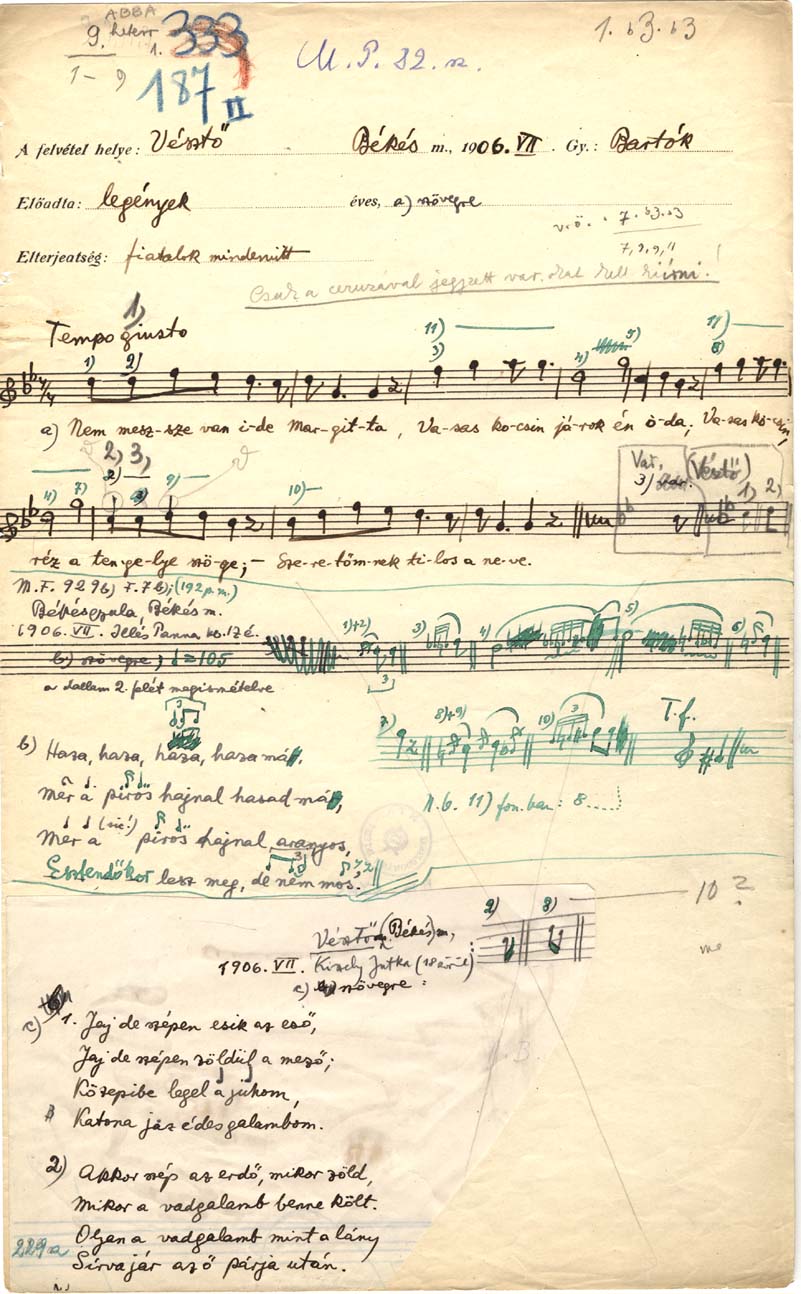 ABBA
9. heterr
1. 333
1 – 9
187 II
M. P. 32. sz.
1. b3. b3
A felvétel helye: Vésztő Békés m., 1906. VII. Gy.: Bartók
Előadta: legények éves, a) szövegre
v.ö.: 7. b3. b3
7, 9, 9, 11
Elterjeatség: fiatalok mindenütt
Csak a ceruzával jegyzett var.okat kell kiírni!
1)
Tempo giusto
1) 2) 11) 3) 4) 5) 11) 8)
a) Nem mesz-sze van i-de Mar-git-ta, Va-sas ko-csin já-rok én ö-da; Va-sas ko-csim,
2, 3,
4) 7) 2) 3) 9) 10)
Var. (Vésztő)
3) 1) 2)
réz a ten-ge-lye szö-ge; – Sze-re-tőm-nek ti-los a ne-ve.
M.F. 929b) F. 7b); (192 p.m.)
Békésgyula, Békés m.
1906. VII. Illés Panna ks. 17 é.
b) szövegre; ♩=105
1)+2) 3) 4) 5) 6)
a dallam 2. felét megismételve
3
7) 8)+9) 10) 3 T.f.
b) Haza, haza, haza, haza már,
Mer a piros hajnal hasad már,
N.b. 11) fon.ban: 8
(sic!)
Mer a piros hajnal aranyos,
3
Esztendőkor lesz meg, de nem mos.
10?
2) 8)
Vésztő (Békés) m,
1906. VII. Király Jutka (18 éves)
c) szövegre:
c) 1. Jaj de szépen esik az eső,
Jaj de szépen zöldül a mező;
Közepibe legel a juhom,
Katona jaz édes galambom.
2) Akkor szép az erdő, mikor zöld,
Mikor a vadgalamb benne költ.
Olyan a vadgalamb mint a lány
229a
Sirva jár az ő párja után.